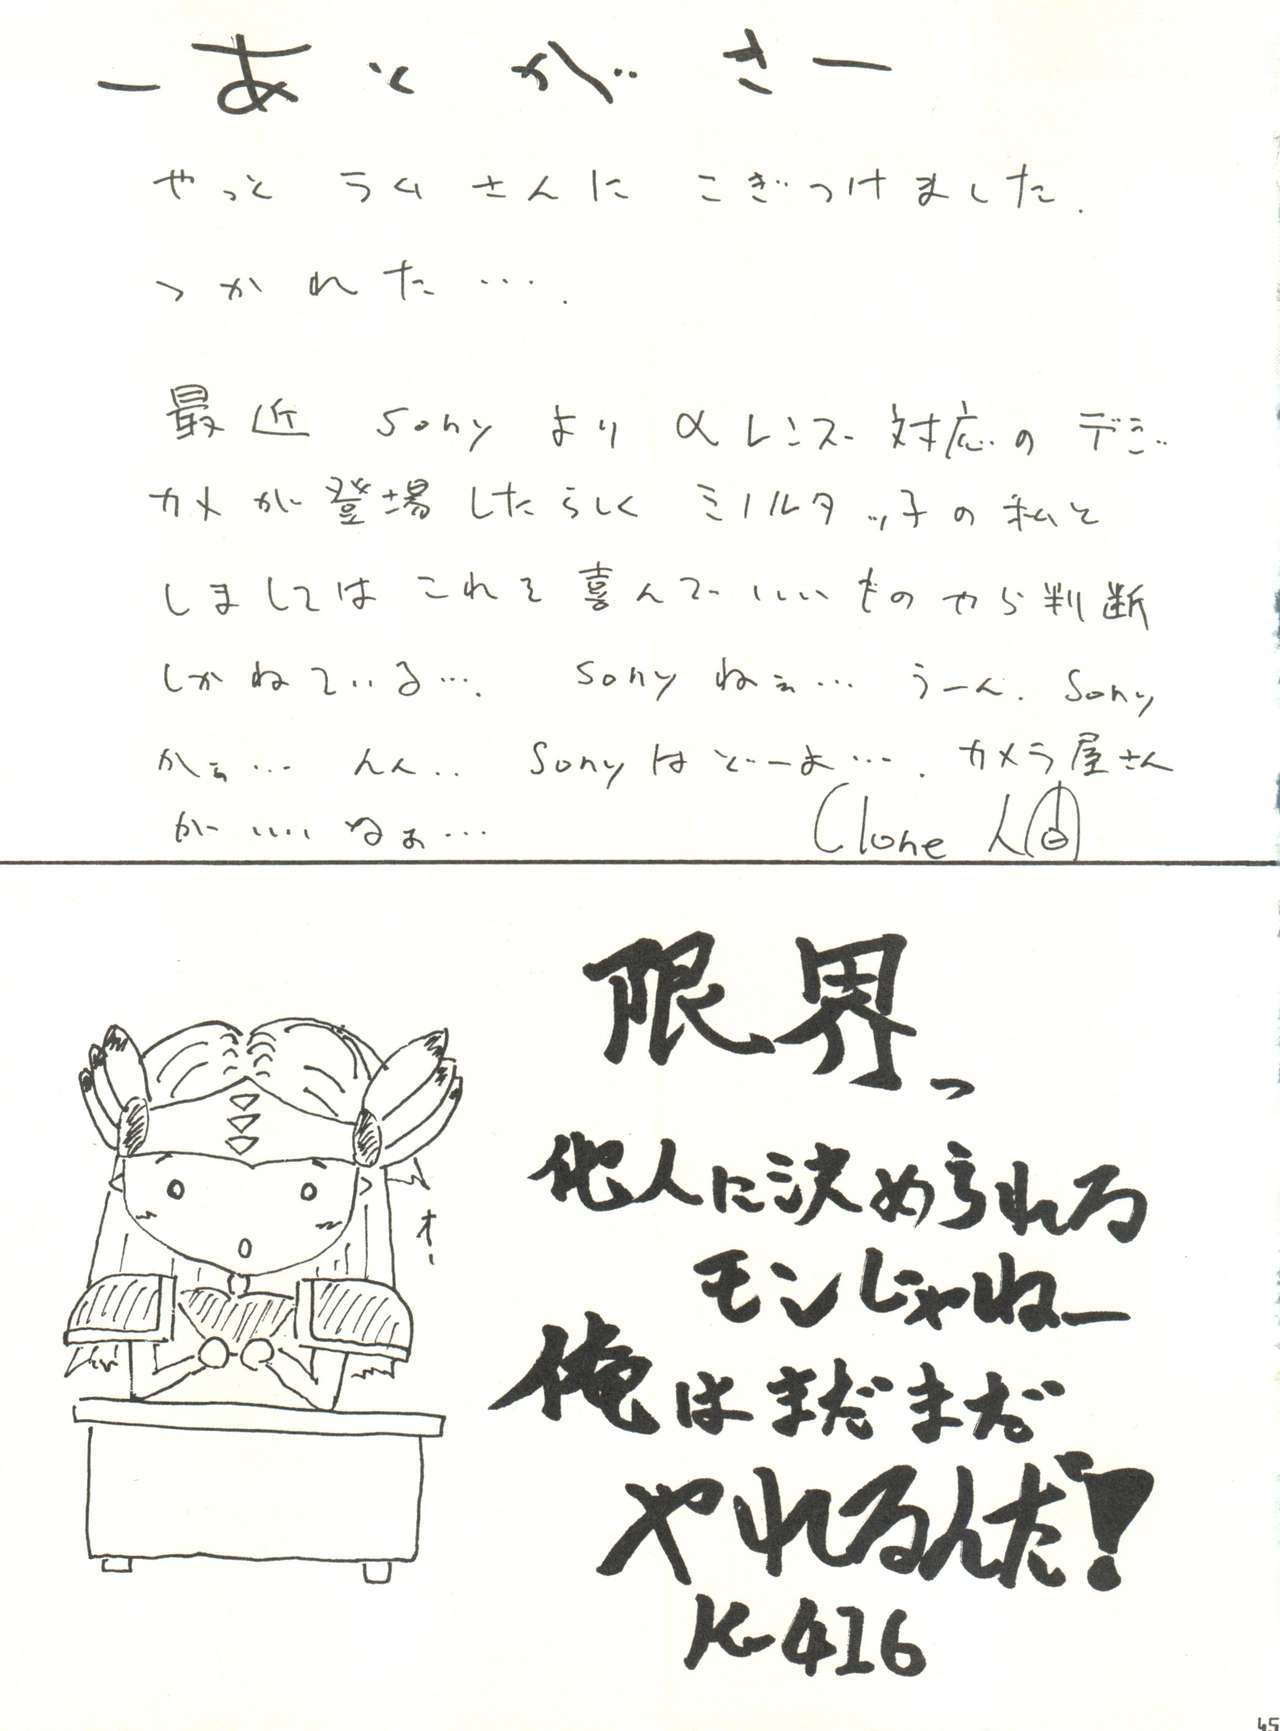 ー あとがき ー
やっと ラムさんに こぎつけました.
つかれた….
最近 Sony より αレンズ 対応の デジ
カメが 登場したらしく ミノルタッ子の私と
しましては これを 喜んで いいものやら 判断
しかねている…. Sony ねぇ… うーん. Sony
かぁ… んん.. Sony はどーよ…. カメラ屋さん
が いい なぁ…
Clone 人間
限界っ
他人に決められる
モンじゃねー
俺はまだまだ
やれるんだ!
K-416
オー
45